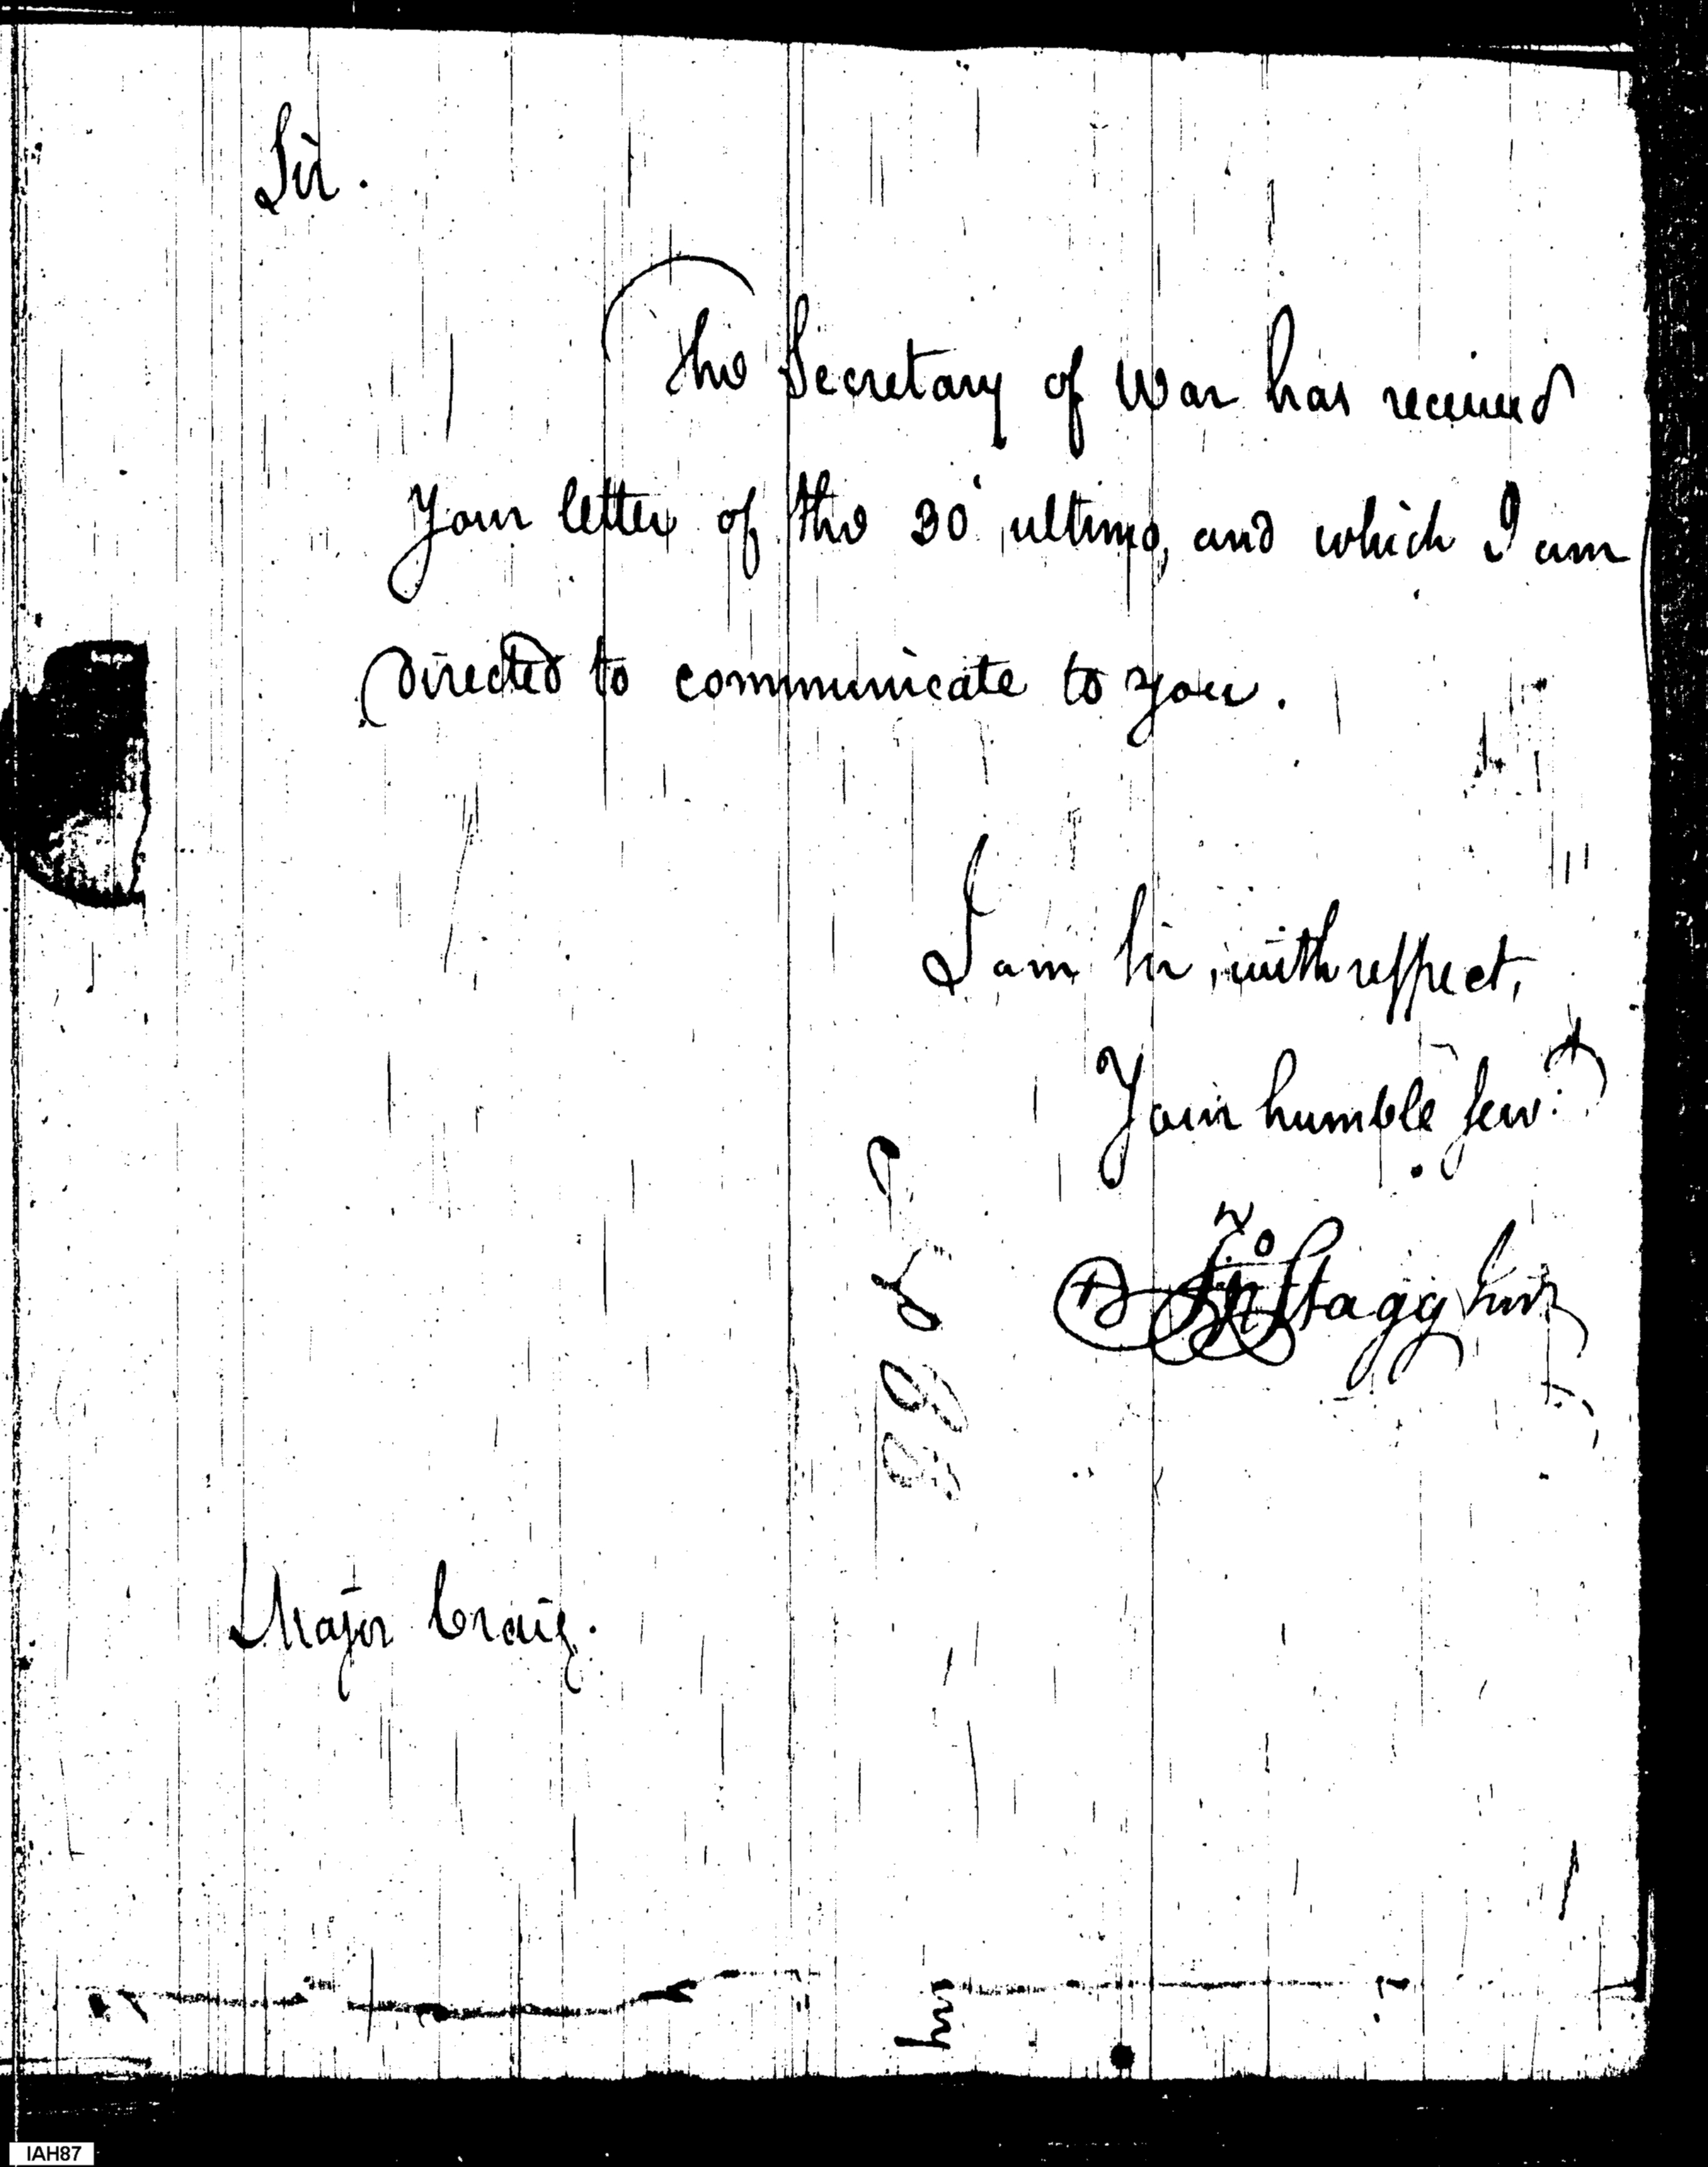 Sir.
The Secretary of War has received
Your letter of the 30 ultimo, and which I am
directed to communicate to you.
I am Sir, with respect,
Your humble Serv.t
Jno Stagg Junr
Major Craig.
IAH87